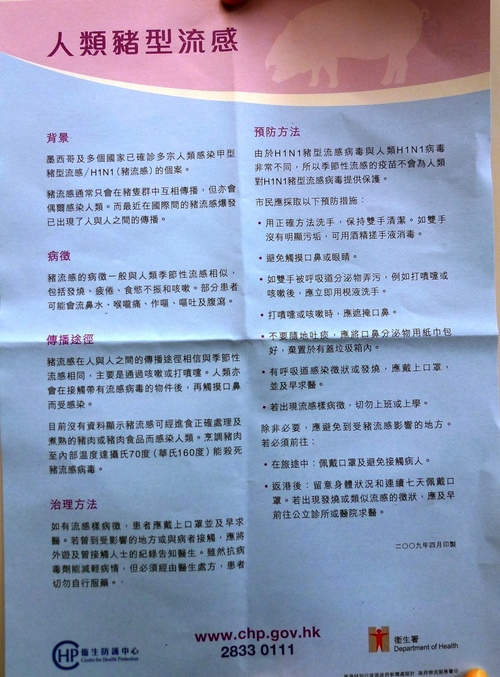 人類豬型流感
背景
墨西哥及多個國家已確診多宗人類感染甲型
豬型流感/H1N1（豬流感）的個案。
豬流感通常只會在豬隻群中互相傳播，但亦會
偶爾感染人類。而最近在國際間的豬流感爆發
已出現了人與人之間的傳播。
病徵
豬流感的病徵一般與人類季節性流感相似，
包括發燒、疲倦、食慾不振和咳嗽。部分患者
可能會流鼻水、喉嚨痛、作嘔、嘔吐及腹瀉。
傳播途徑
豬流感在人與人之間的傳播途徑相信與季節性
流感相同，主要是通過咳嗽或打噴嚏。人類亦
會在接觸帶有流感病毒的物件後，再觸摸口鼻
而受感染。
目前沒有資料顯示豬流感可經進食正確處理及
煮熟的豬肉或豬肉食品而感染人類。烹調豬肉
至內部溫度達攝氏70度（華氏160度）能殺死
豬流感病毒。
治理方法
如有流感樣病徵，患者應戴上口罩並及早求
醫。若曾到受影響的地方或與病者接觸，應將
外遊及曾接觸人士的紀錄告知醫生。雖然抗病
毒劑能減輕病情，但必須經由醫生處方，患者
切勿自行服藥。
預防方法
由於H1N1豬型流感病毒與人類H1N1病毒
非常不同，所以季節性流感的疫苗不會為人類
對H1N1豬型流感病毒提供保護。
市民應採取以下預防措施：
• 用正確方法洗手，保持雙手清潔。如雙手
沒有明顯污垢，可用酒精搓手液消毒。
• 避免觸摸口鼻或眼睛。
• 如雙手被呼吸道分泌物弄污，例如打噴嚏或
咳嗽後，應立即用梘液洗手。
• 打噴嚏或咳嗽時，應遮掩口鼻。
• 不要隨地吐痰，應將口鼻分泌物用紙巾包
好，棄置於有蓋垃圾箱內。
• 有呼吸道感染徵狀或發燒，應戴上口罩，
並及早求醫。
• 若出現流感樣病徵，切勿上班或上學。
除非必要，應避免到受豬流感影響的地方。
若必須前往：
• 在旅途中：佩戴口罩及避免接觸病人。
• 返港後：留意身體狀況和連續七天佩戴口
罩。若出現發燒或類似流感的徵狀，應及早
前往公立診所或醫院求醫。
二〇〇九年四月印製
CHP 衞生防護中心
Centre for Health Protection
www.chp.gov.hk
2833 0111
衞生署
Department of Health